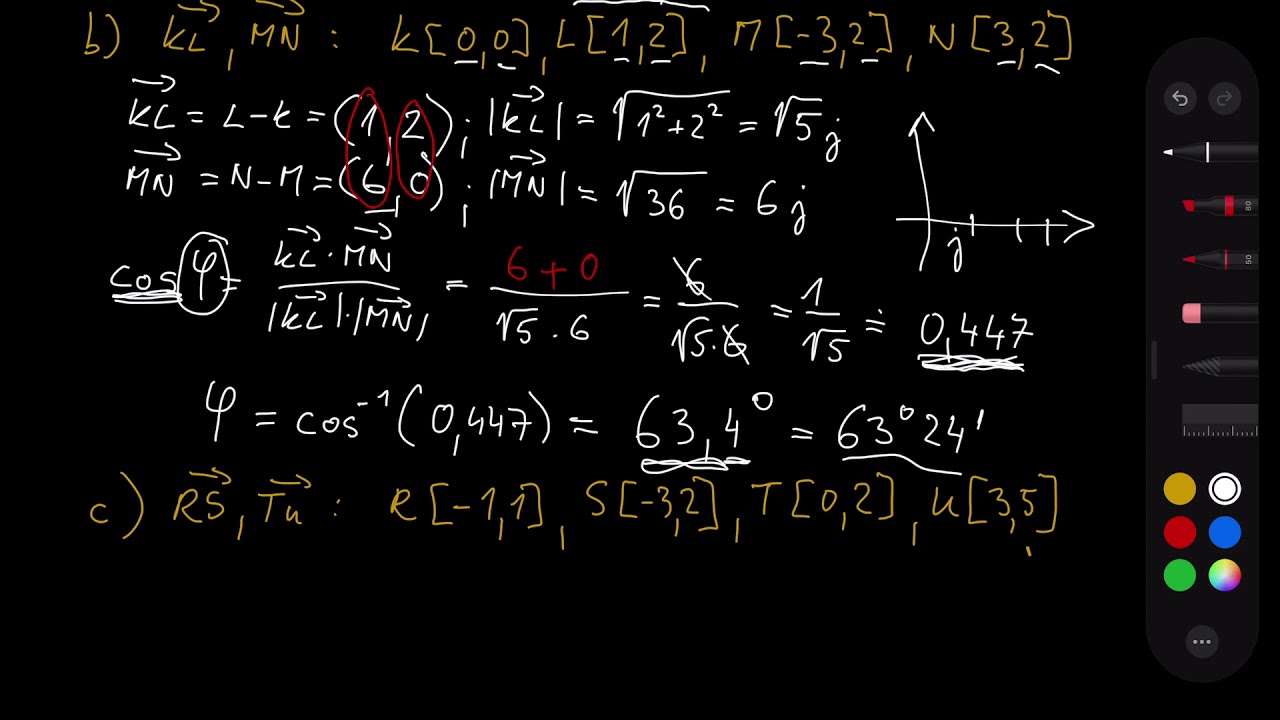 b) KL, MN : K[0,0], L[1,2], M[-3,2], N[3,2]
KL = L-K = (1,2) ; |KL| = √1²+2² = √5 j
MN = N-M = (6,0) ; |MN| = √36 = 6 j
j
cos φ = KL·MN / |KL|·|MN| = 6+0 / √5·6 = 6 / √5·6 = 1 / √5 ≐ 0,447
φ = cos⁻¹(0,447) = 63,4° = 63°24'
c) RS, TU : R[-1,1], S[-3,2], T[0,2], U[3,5]
80
50